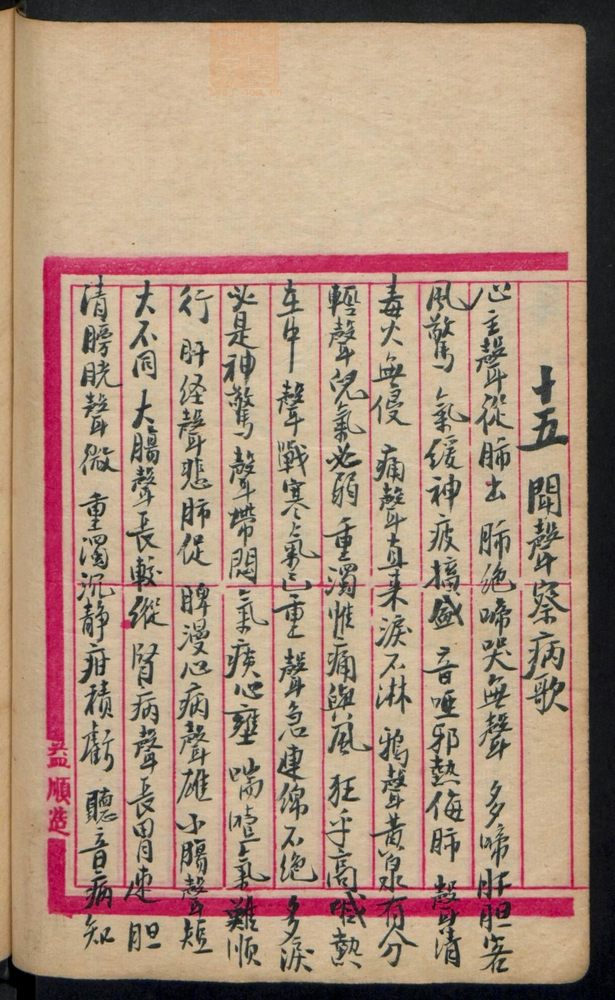 十五 聞聲察病歌
心主聲從肺出 肺絶啼哭無聲 多啼肝胆客
風驚 氣緩神疲搐盛 音啞邪熱侮肺 聲清
毒火無侵 痛聲直来淚不淋 鴉聲黄泉有分
輕聲兒氣必弱 重濁惟痛與風 狂乎高喊熱
在中 聲戰寒氣已重 聲急連綿不絶 多淚
必是神驚 聲帶悶氣痰心壅 喘噎氣難順
行 肝经聲悲肺促 脾漫心病聲雄 小腸聲短
大不同 大腸聲長較縱 腎病聲長胃速 胆
清膀胱聲微 重濁沉静疳積虧 聽音病知
益順造